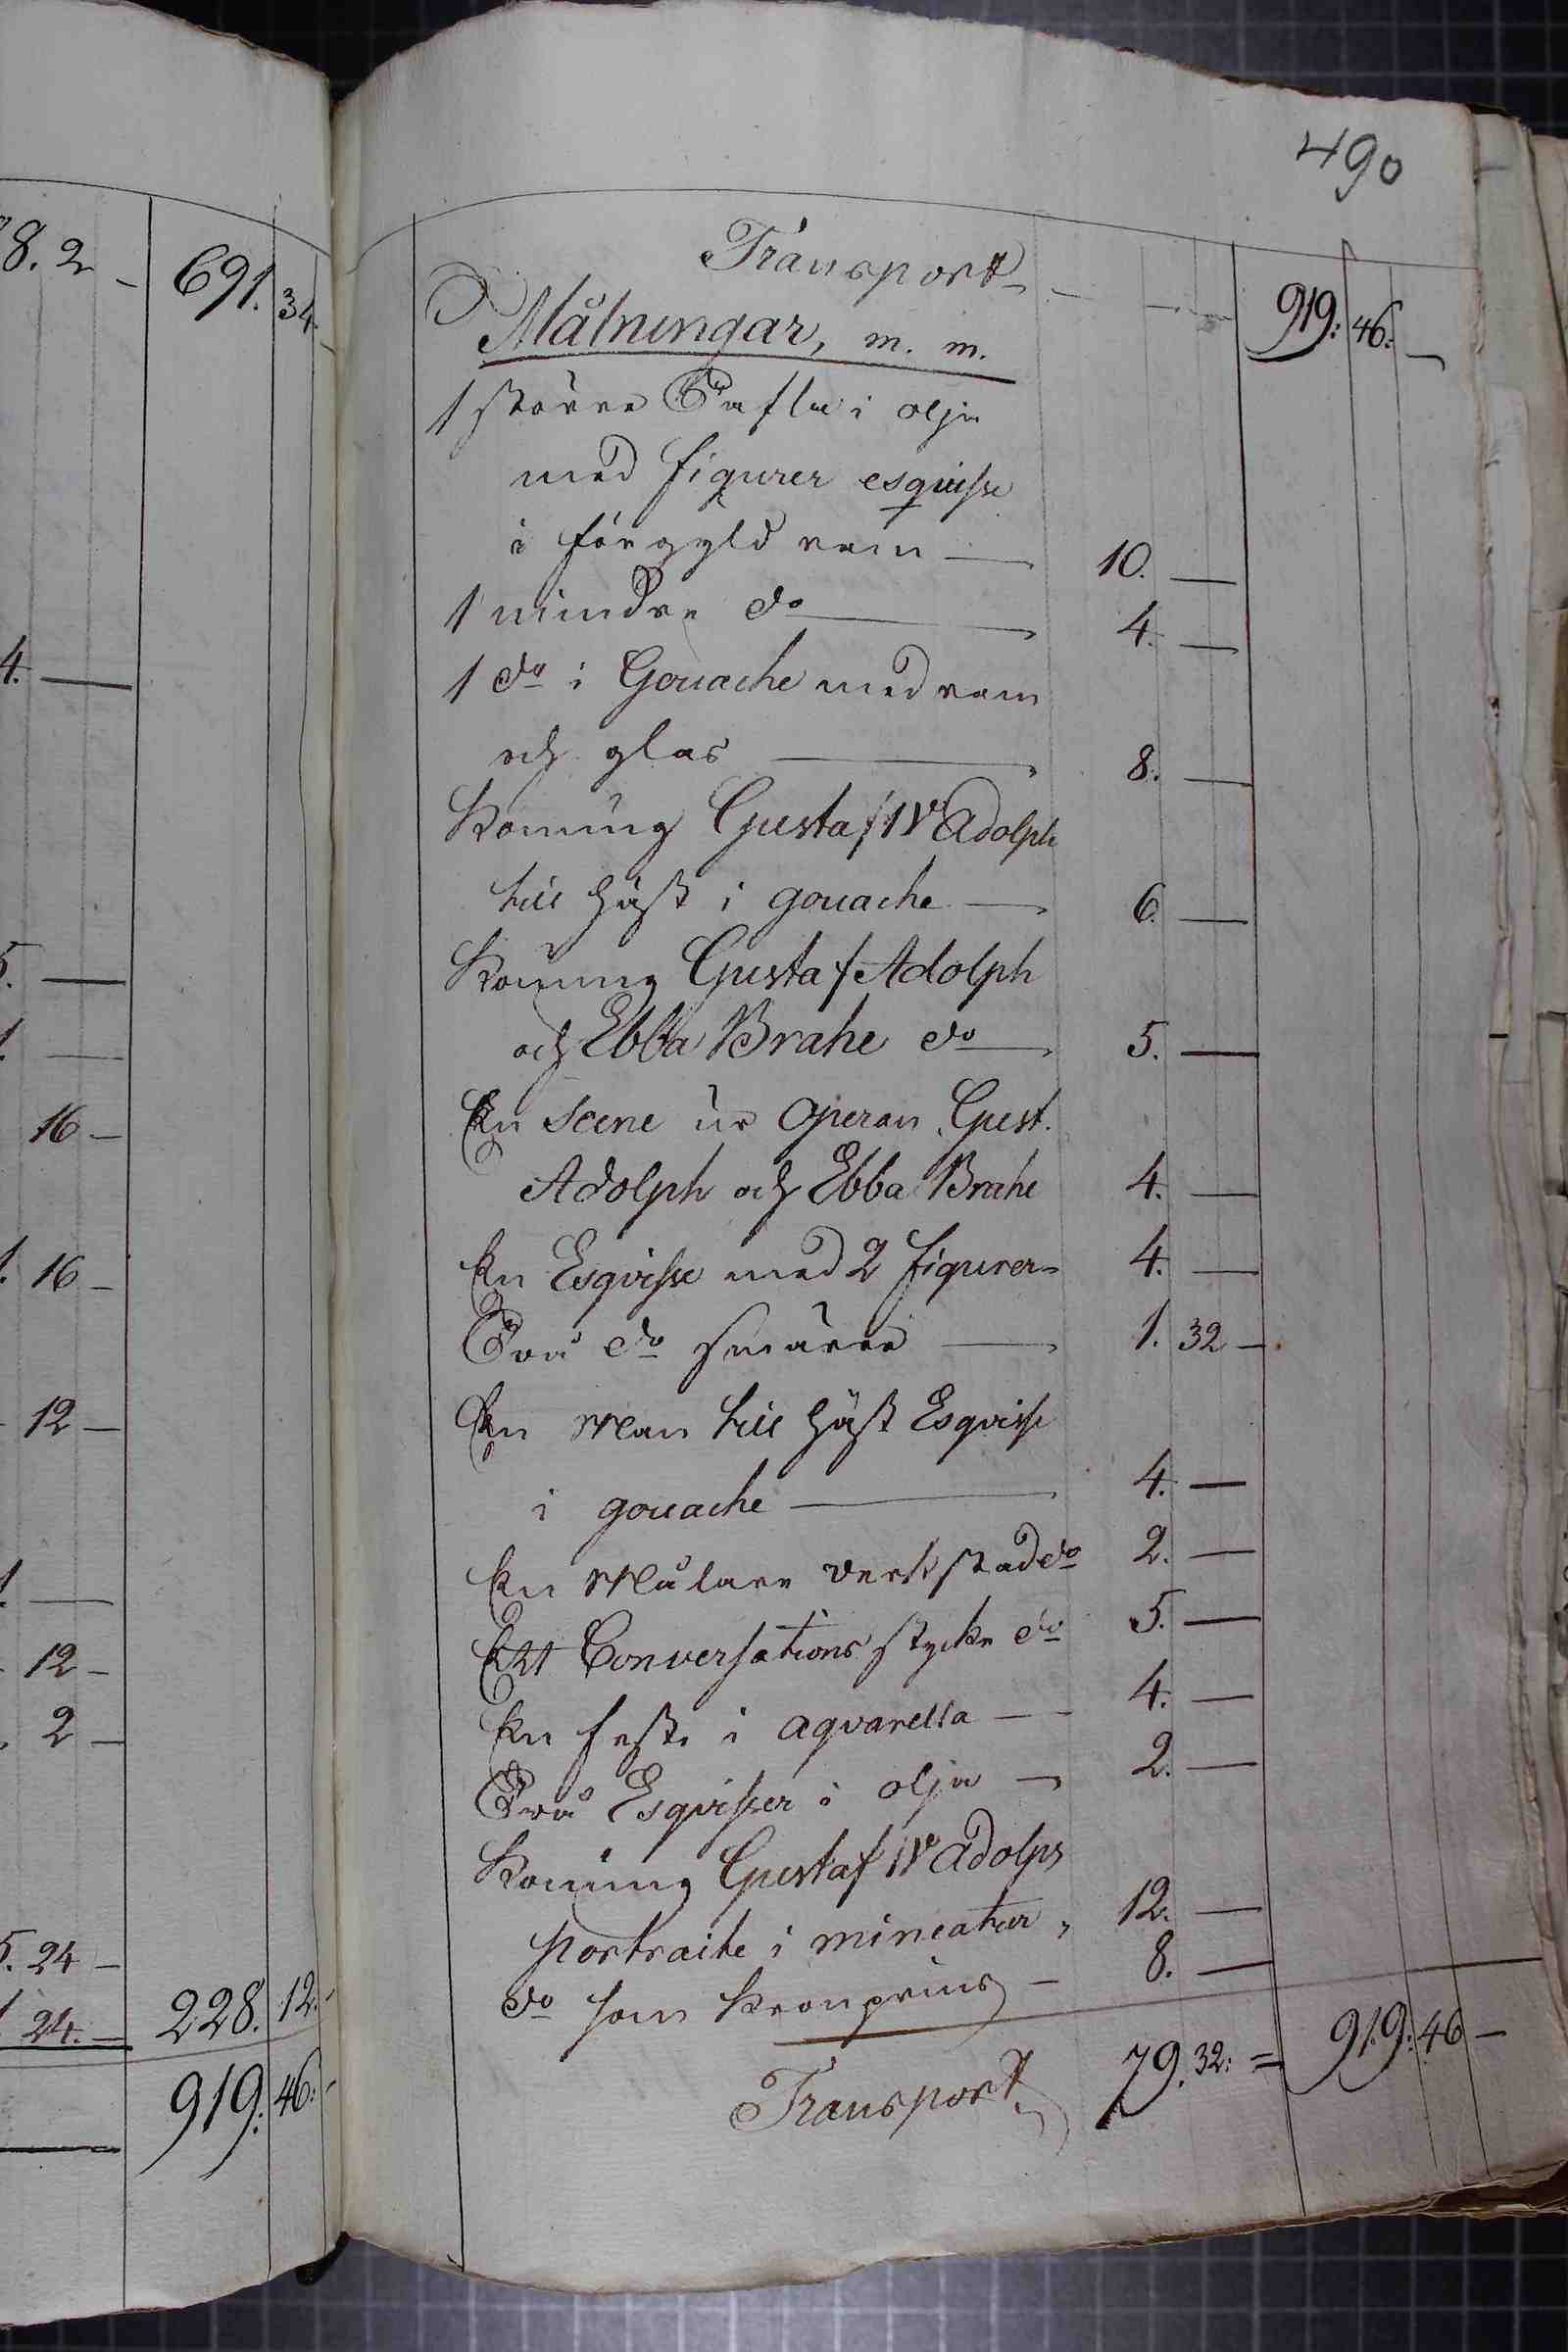 8. 2 - 691. 34 -
4. —
5. —
1. —
16 -
1. 16 -
- 12 -
1. —
- 12 -
. 2 -
5. 24 -
1 24. = 228. 12. -
919. 46: -
490
Transport - - - 919: 46. -
Målningar, m. m.
1 större Tafla i olja
med figurer esquisse
i förgyld ram — 10. —
1 mindre do — 4. —
1 do i Gouache med ram
och glas — 8. —
Konung Gustaf IV Adolph
till häst i gouache — 6. —
Konung Gustaf Adolph
och Ebba Brahe do — 5. —
En Scene ur Operan Gust.
Adolph och Ebba Brahe 4. —
En Esqvisse med 2 figurer - 4. —
Två do smärre — 1. 32 -
En Man till häst Esqvisse
i gouache — 4. —
En Målare verkstad do 2. —
Ett Conversations stycke do 5. —
En fest i aqvarella — 4. —
Två Esqvisser i olja — 2. —
Konung Gustaf IV Adolphs
portraite i mineatur, 12. —
do som Kronprins — 8. —
Transport 79. 32: = 919: 46 -